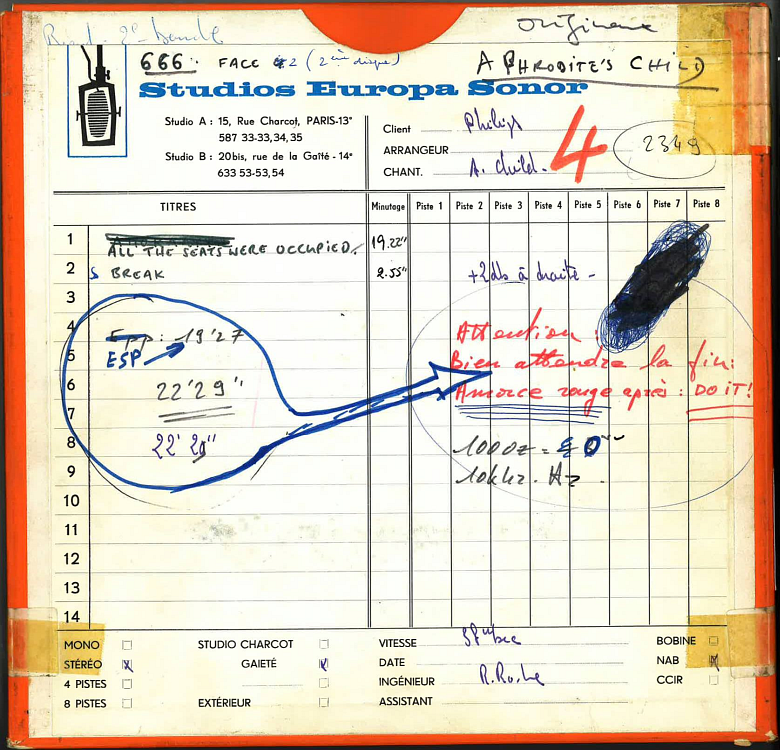 2e bande
Originaux
666: FACE 2 (2ème disque)
APHRODITE'S CHILD
Studios Europa Sonor
Studio A : 15, Rue Charcot, PARIS-13e
587 33-33,34,35
Studio B : 20bis, rue de la Gaîté - 14e
633 53-53,54
Client Philips
ARRANGEUR
CHANT. A. Child.
4
2349
TITRES Minutage Piste 1 Piste 2 Piste 3 Piste 4 Piste 5 Piste 6 Piste 7 Piste 8
1 ALL THE SEATS WERE OCCUPIED. 19.22"
2 BREAK 2.55" +2dbs à droite -
3
4 19'27
Attention :
5 ESP
Bien attendre la fin:
6 22'29"
Amorce rouge après : DO IT!
7
8 22' 29"
1000z = 0
9
10khz. Hz
10
11
12
13
14
MONO STUDIO CHARCOT VITESSE BOBINE
STÉRÉO x GAIETÉ x DATE NAB x
4 PISTES INGÉNIEUR R. Roche CCIR
8 PISTES EXTÉRIEUR ASSISTANT